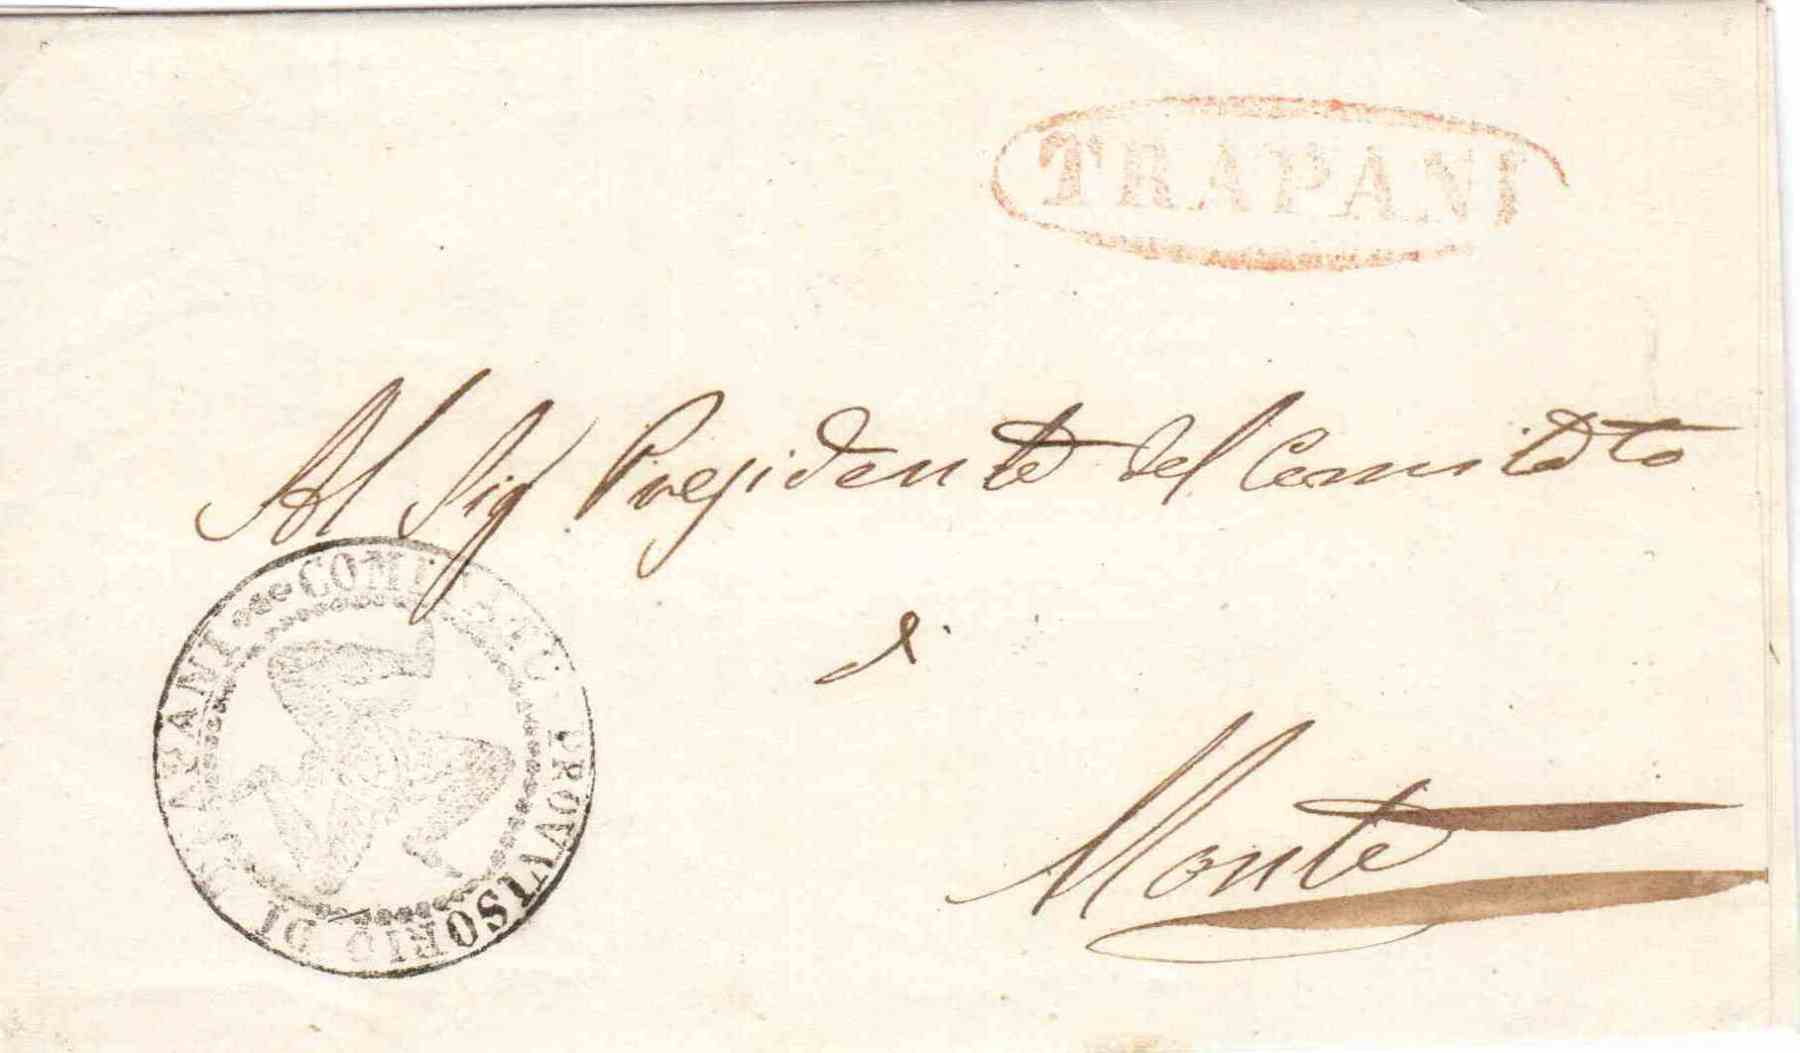 TRAPANI
Al Sig Presidente del Comitato
di
Monte
COMITATO PROVVISORIO DI TRAPANI